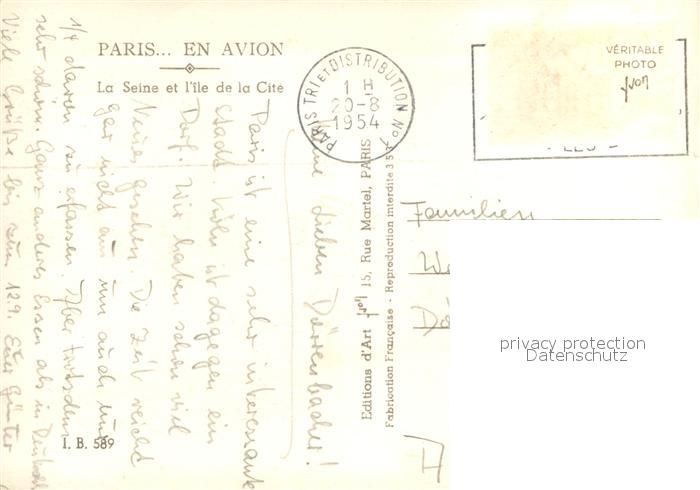 PARIS... EN AVION
La Seine et l'île de la Cité
PARIS TRI et DISTRIBUTION No 1
1 H
20-8
1954
VÉRITABLE
PHOTO
yvon
Editions d'Art yvon 15, Rue Martel, PARIS
Fabrication Française - Reproduction interdite
I. B. 589
Familien
privacy protection
Datenschutz
Meine lieben Dörrenbacher!
Paris ist eine sehr interessante
Stadt. Köln ist dagegen ein
Dorf! Wir haben schon viel
Neues gesehen. Die Zeit reicht
gar nicht aus um auch nur
1/4 davon zu erfassen. Aber trotzdem
sehr schön. Ganz anderes Essen als in
Viele Grüße bis zum 12.9. Euer Günter